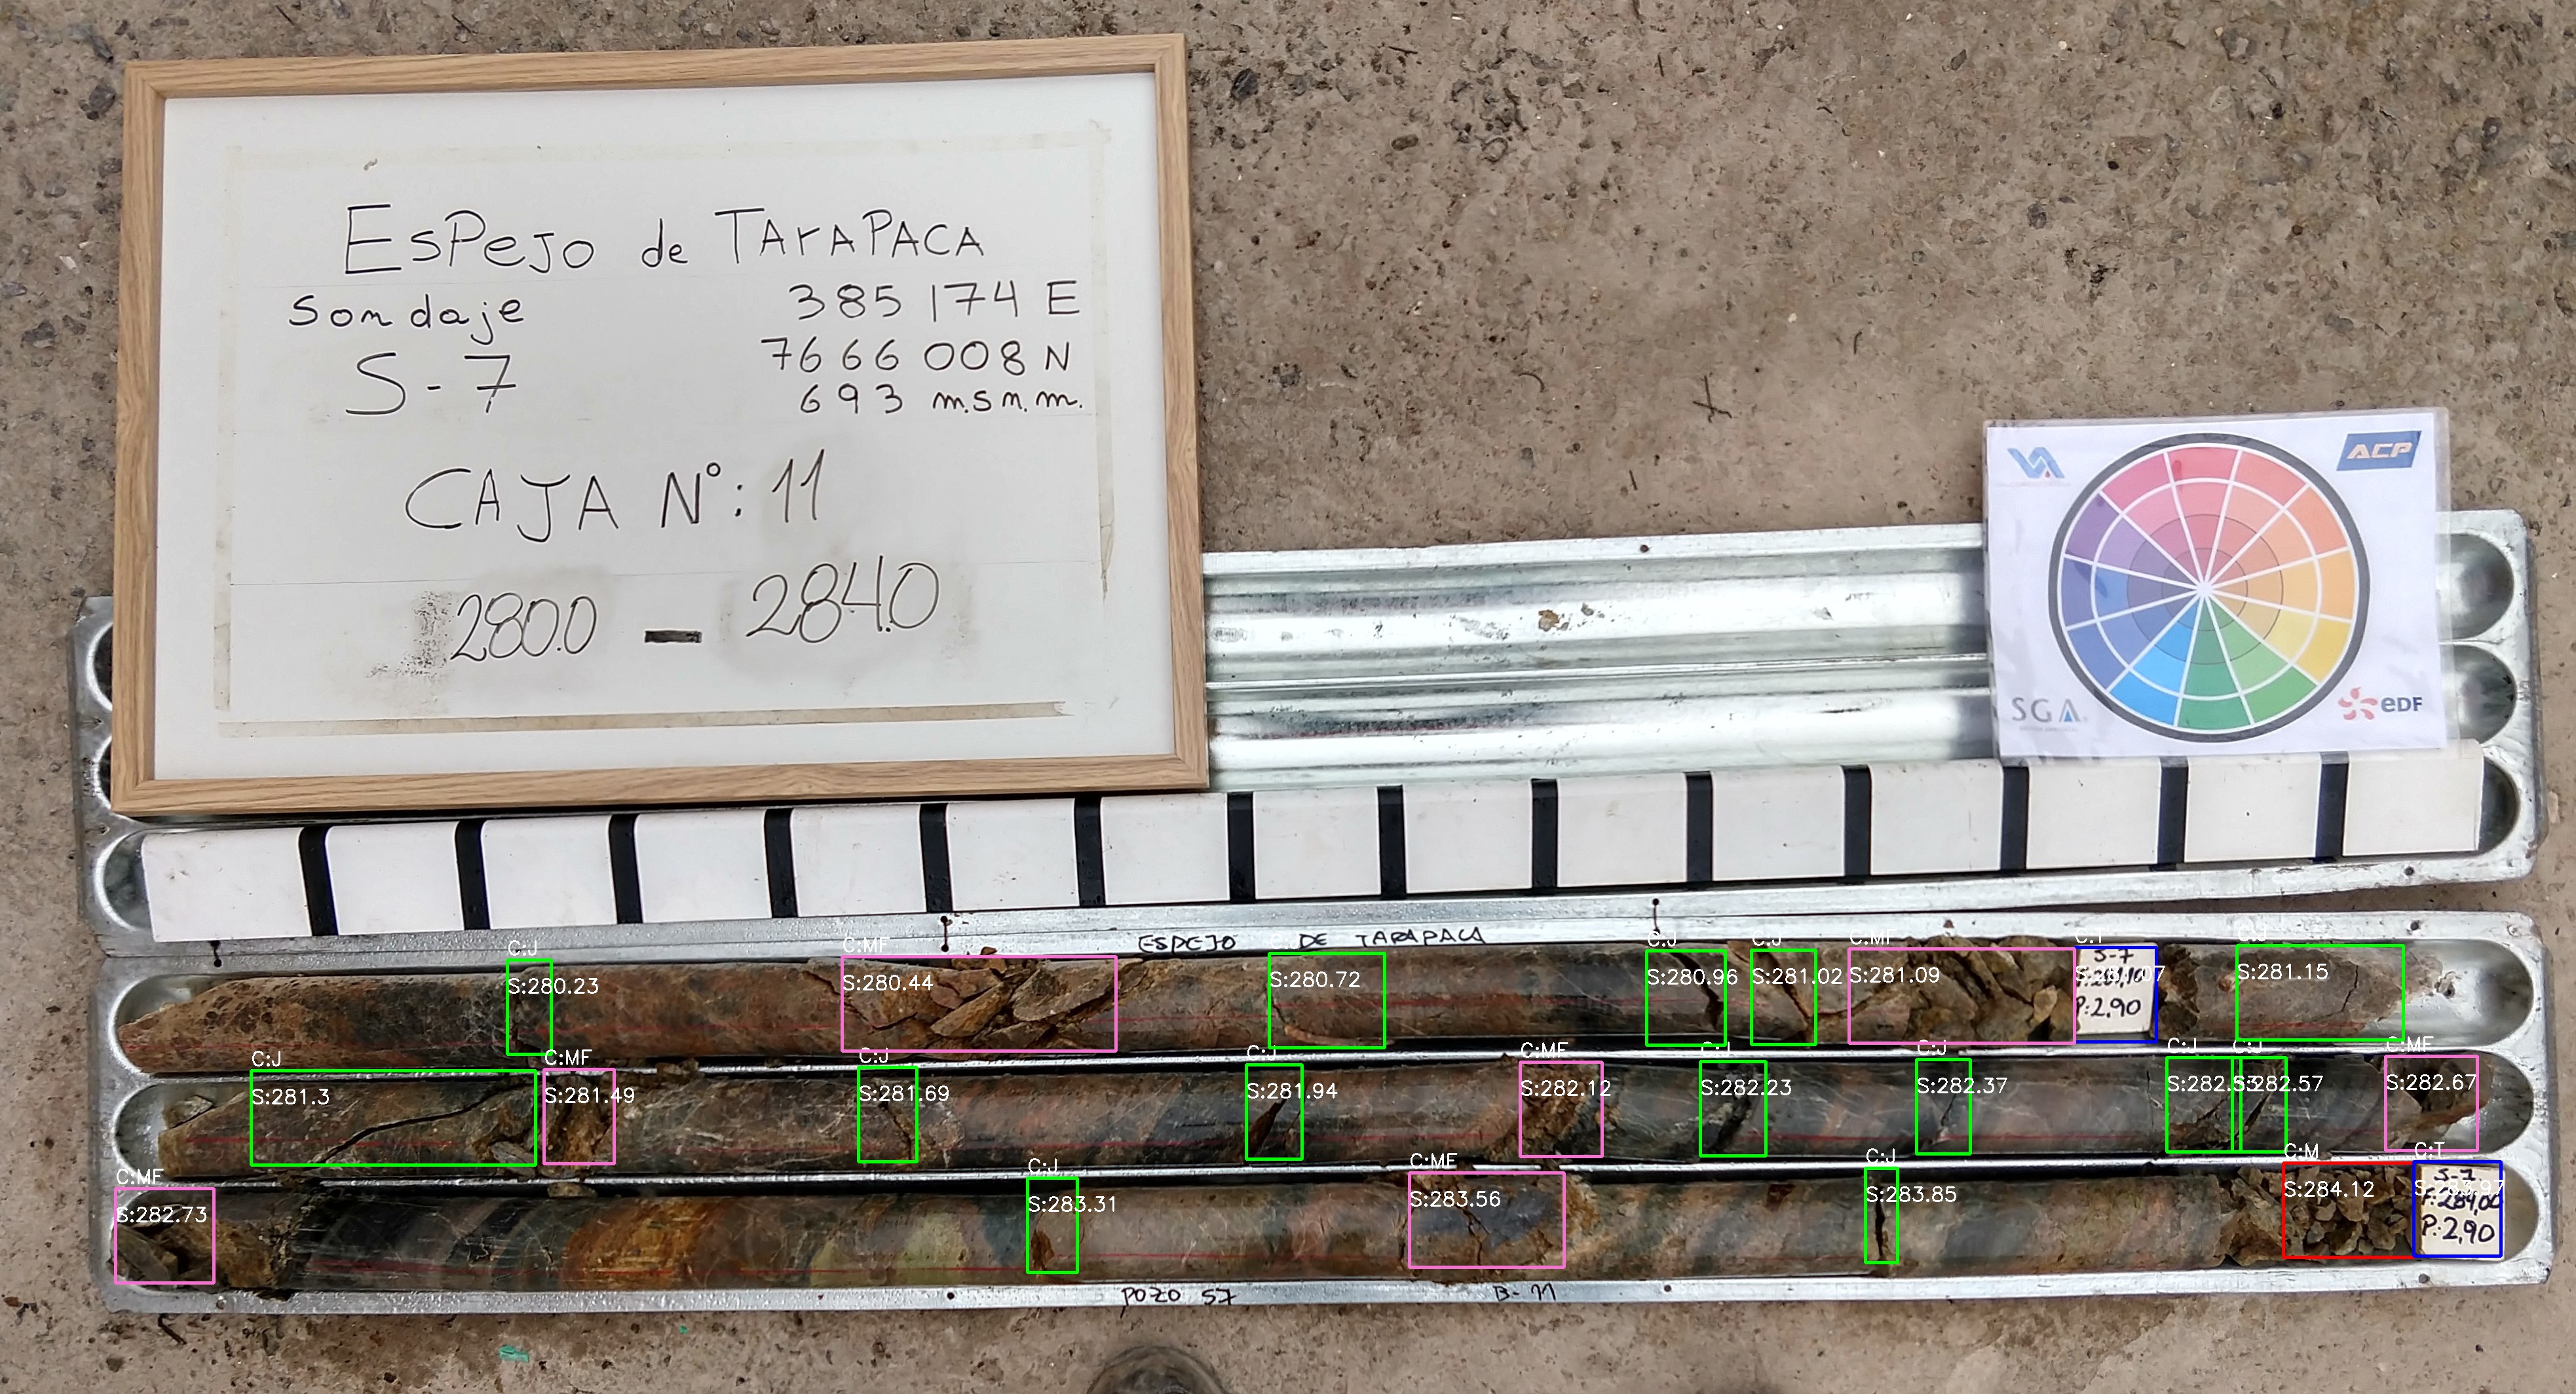 ESPEJO de TARAPACA
Sondaje
385174 E
S-7
7666 008 N
693 m.s.n.m.
CAJA N°: 11
280.0 - 284.0
ACP
SGA
eDF
ESPEJO DE TARAPACA
C:J
S:280.23
C:MF
S:280.44
S:280.72
C:J
S:280.96
C:J
S:281.02
C:MF
S:281.09
C:T
S-7
P:2,90
C:J
S:281.15
C:J
S:281.3
C:MF
S:281.49
C:J
S:281.69
C:J
S:281.94
C:MF
S:282.12
C:J
S:282.23
C:J
S:282.37
C:J
S:282.53
C:J
S:282.57
C:MF
S:282.67
C:MF
S:282.73
C:J
S:283.31
C:MF
S:283.56
C:J
S:283.85
C:M
S:284.12
C:T
S-7
F:284,00
P:2,90
POZO S7
B-11